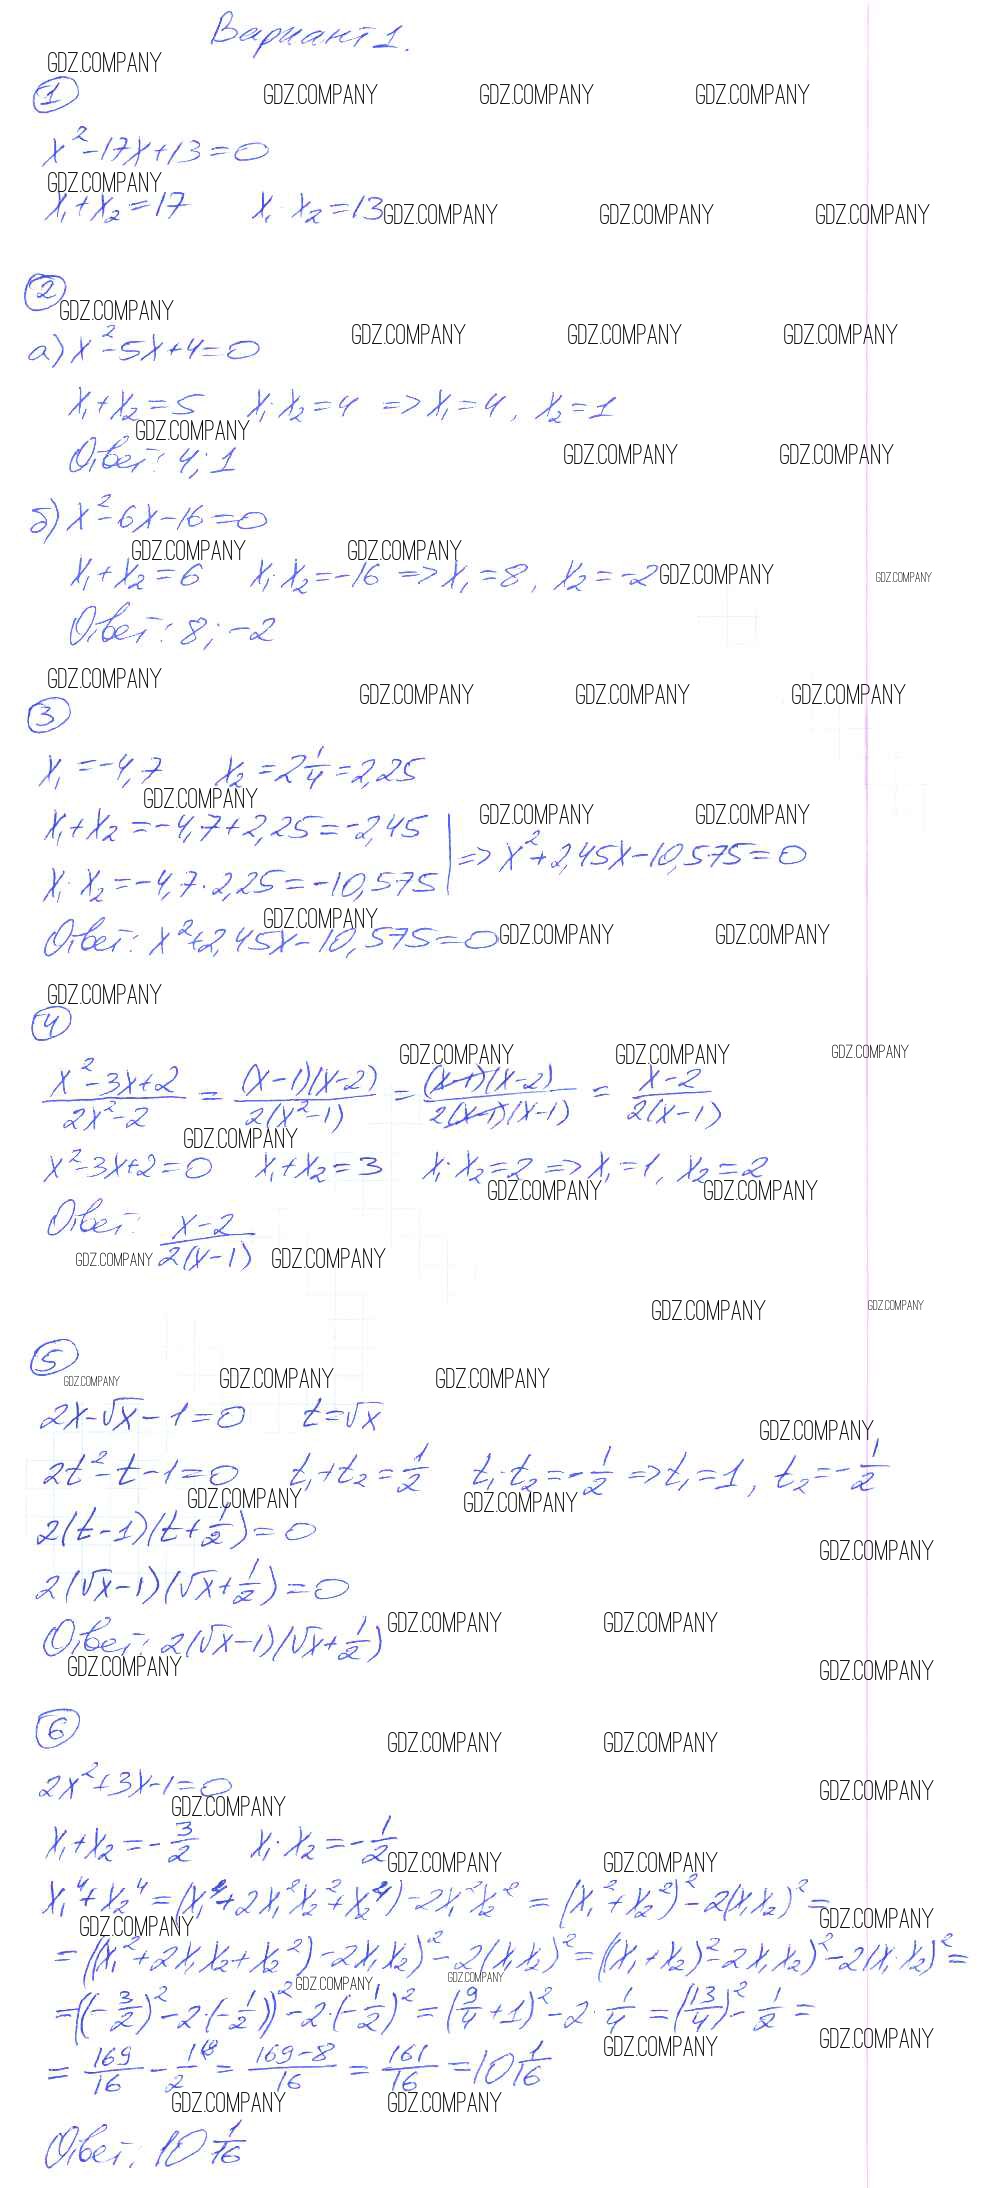 Вариант 1.
GDZ.COMPANY
① GDZ.COMPANY GDZ.COMPANY GDZ.COMPANY
x²-17x+13=0
GDZ.COMPANY
x₁+x₂=17 x₁·x₂=13 GDZ.COMPANY GDZ.COMPANY GDZ.COMPANY
②
GDZ.COMPANY
GDZ.COMPANY GDZ.COMPANY GDZ.COMPANY
а) x²-5x+4=0
x₁+x₂=5 x₁·x₂=4 => x₁=4, x₂=1
GDZ.COMPANY
Ответ: 4; 1 GDZ.COMPANY GDZ.COMPANY
б) x²-6x-16=0
GDZ.COMPANY GDZ.COMPANY
x₁+x₂=6 x₁·x₂=-16 => x₁=8, x₂=-2 GDZ.COMPANY GDZ.COMPANY
Ответ: 8; -2
GDZ.COMPANY
GDZ.COMPANY GDZ.COMPANY GDZ.COMPANY
③
x₁=-4,7 x₂=2 1/4=2,25
GDZ.COMPANY
GDZ.COMPANY GDZ.COMPANY
x₁+x₂=-4,7+2,25=-2,45
=> x²+2,45x-10,575=0
x₁·x₂=-4,7·2,25=-10,575
GDZ.COMPANY
Ответ: x²+2,45x-10,575=0 GDZ.COMPANY GDZ.COMPANY
GDZ.COMPANY
④
GDZ.COMPANY GDZ.COMPANY GDZ.COMPANY
(x²-3x+2)/(2x²-2) = ((x-1)(x-2))/(2(x²-1)) = ((x-1)(x-2))/(2(x-1)(x-1)) = (x-2)/(2(x-1))
GDZ.COMPANY
x²-3x+2=0 x₁+x₂=3 x₁·x₂=2 => x₁=1, x₂=2
GDZ.COMPANY GDZ.COMPANY
Ответ: (x-2)/(2(x-1))
GDZ.COMPANY GDZ.COMPANY
GDZ.COMPANY GDZ.COMPANY
⑤
GDZ.COMPANY GDZ.COMPANY GDZ.COMPANY
2x-√x-1=0 t=√x
GDZ.COMPANY
2t²-t-1=0 t₁+t₂=1/2 t₁·t₂=-1/2 => t₁=1, t₂=-1/2
GDZ.COMPANY GDZ.COMPANY
2(t-1)(t+1/2)=0
GDZ.COMPANY
2(√x-1)(√x+1/2)=0
GDZ.COMPANY GDZ.COMPANY
Ответ: 2(√x-1)(√x+1/2)
GDZ.COMPANY GDZ.COMPANY
⑥
GDZ.COMPANY GDZ.COMPANY
2x²+3x-1=0 GDZ.COMPANY
GDZ.COMPANY
x₁+x₂=-3/2 x₁·x₂=-1/2
GDZ.COMPANY GDZ.COMPANY
x₁⁴+x₂⁴=(x₁⁴+2x₁²x₂²+x₂⁴)-2x₁²x₂²=(x₁²+x₂²)²-2(x₁x₂)²=
GDZ.COMPANY GDZ.COMPANY
=((x₁²+2x₁x₂+x₂²)-2x₁x₂)²-2(x₁x₂)²=((x₁+x₂)²-2x₁x₂)²-2(x₁·x₂)²=
GDZ.COMPANY GDZ.COMPANY
=((-3/2)²-2·(-1/2))²-2·(-1/2)²=(9/4+1)²-2·1/4=(13/4)²-1/2=
GDZ.COMPANY GDZ.COMPANY
=169/16-1/2=(169-8)/16=161/16=10 1/16
GDZ.COMPANY GDZ.COMPANY
Ответ: 10 1/16